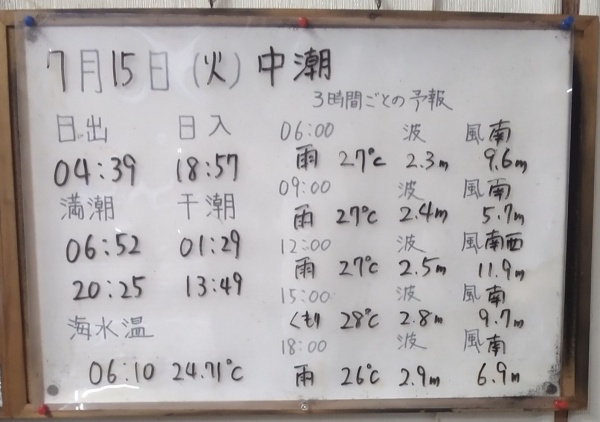 7月15日(火)中潮
日出 日入
04:39 18:57
満潮 干潮
06:52 01:29
20:25 13:49
海水温
06:10 24.71℃
3時間ごとの予報
06:00 波 風南
雨 27℃ 2.3m 9.6m
09:00 波 風南
雨 27℃ 2.4m 5.7m
12:00 波 風南西
雨 27℃ 2.5m 11.9m
15:00 波 風南
くもり 28℃ 2.8m 9.7m
18:00 波 風南
雨 26℃ 2.9m 6.9m